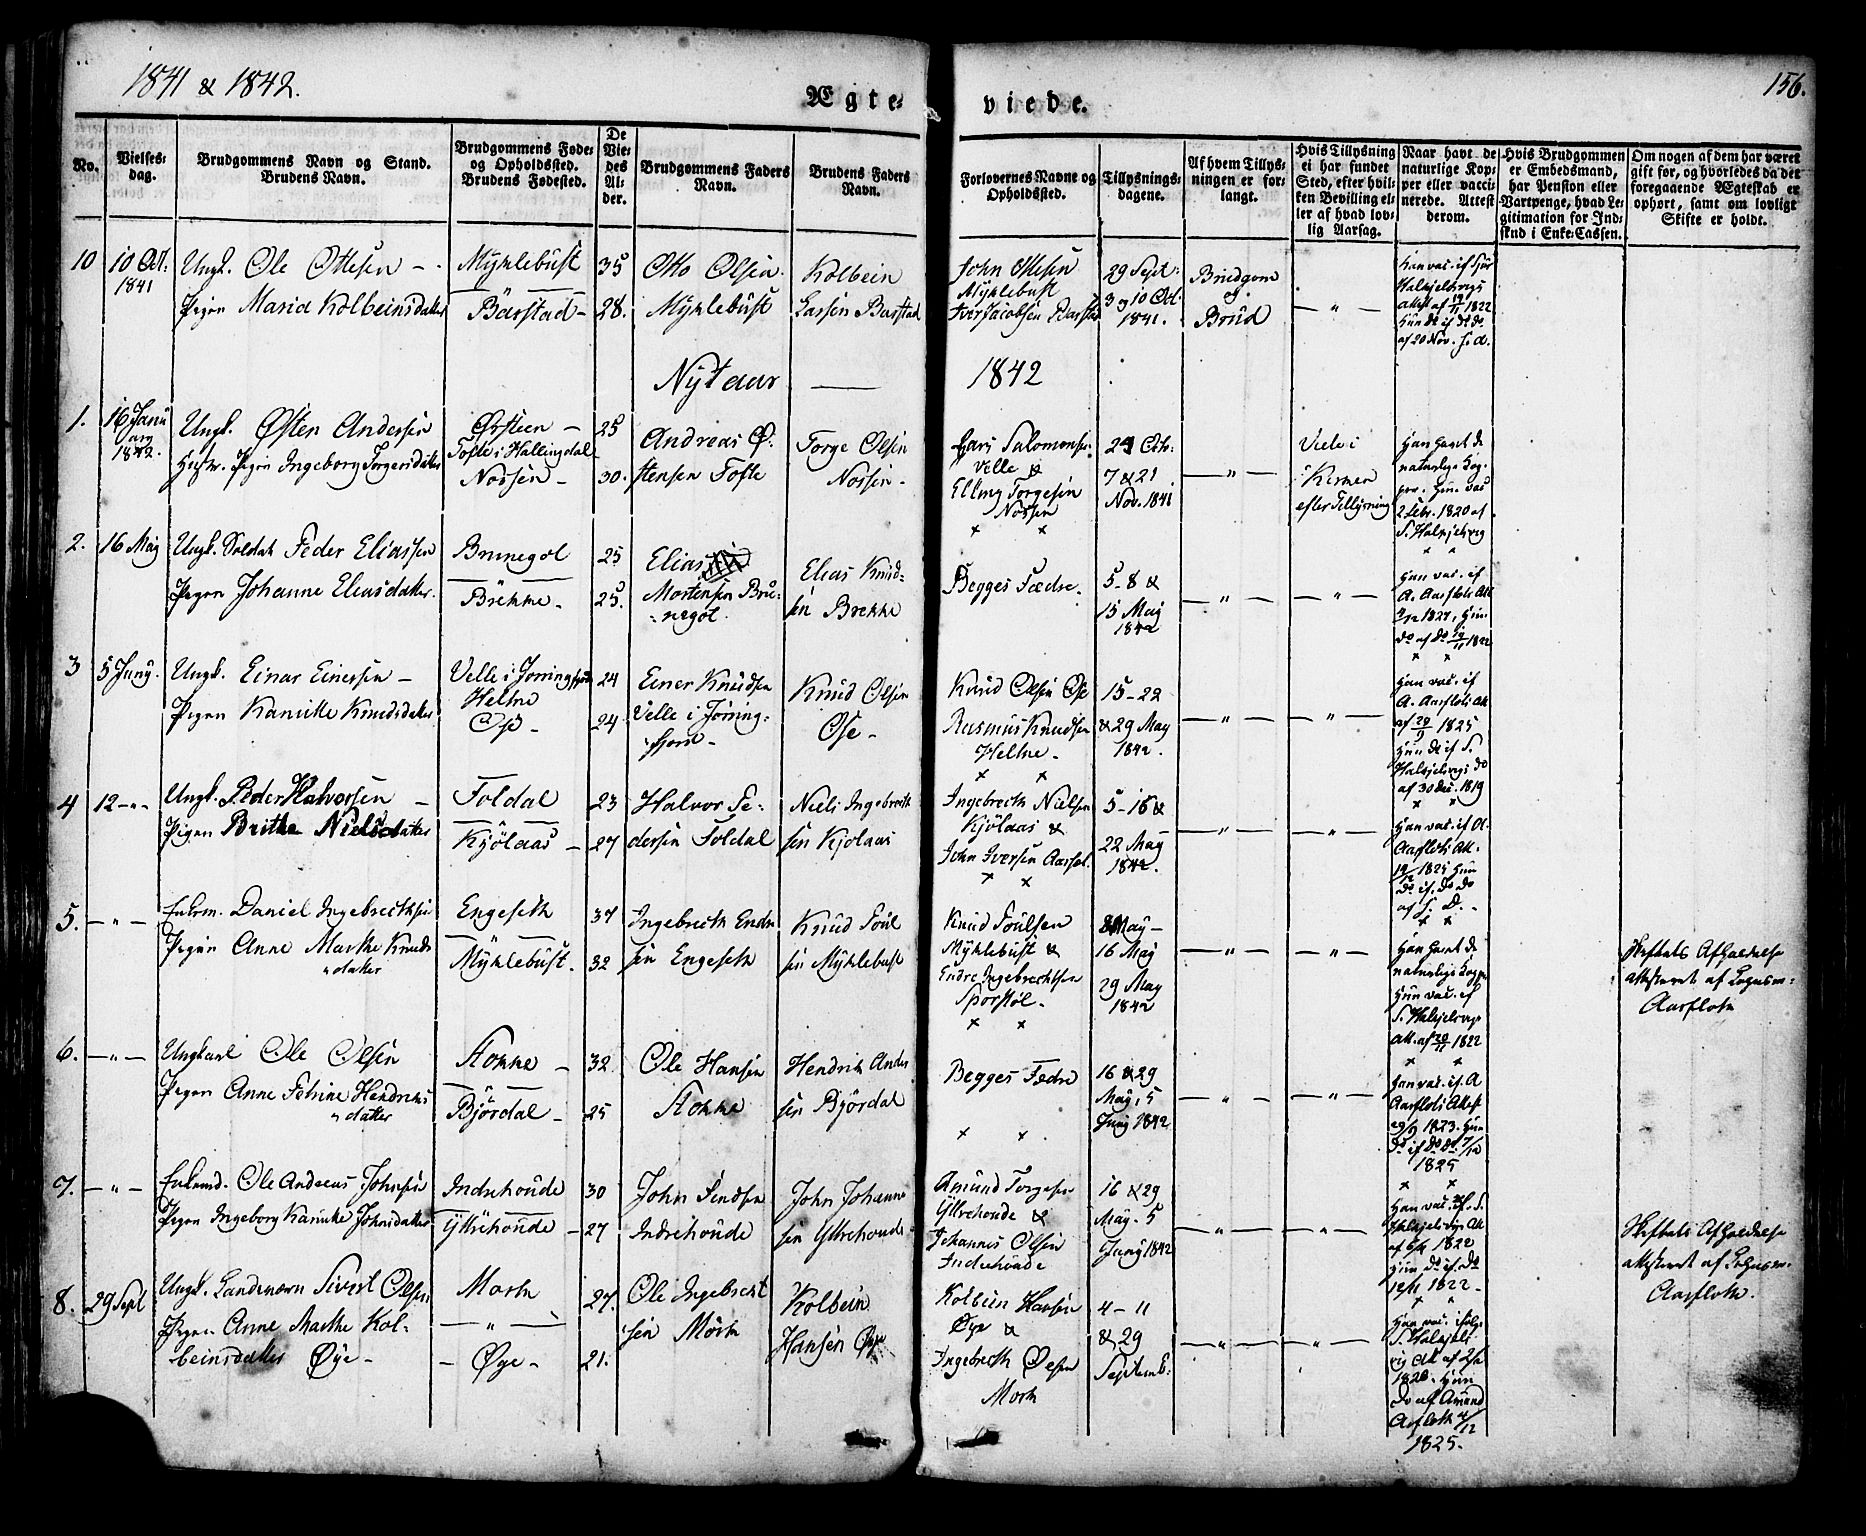 1841 & 1842.
156.
Ægte-
viede.
No.
Vielses-
dag.
Brudgommens Navn og Stand.
Brudens Navn.
Brudgommens Føde-
og Opholdssted.
Brudens Fødested.
De
Vie-
des
Al-
der.
Brudgommens Faders
Navn.
Brudens Faders
Navn.
Forlovernes Navne og
Opholdssted.
Tillysnings-
dagene.
Af hvem Tillys-
ningen er for-
langt.
Hvis Tillysning
ei har fundet
Sted, efter hvil-
ken Bevilling el-
ler af hvad lov-
lig Aarsag.
Naar havt de
naturlige Kop-
per eller vacci-
nerede. Attest
derom.
Hvis Brudgommen
er Embedsmand,
har Pension eller
Vartpenge, hvad Le-
gitimation for Ind-
skud i Enke-Cassen.
Om nogen af dem har været
gift før, og hvorledes da det
foregaaende Ægteskab er
ophørt, samt om lovligt
Skifte er holdt.
10
10 Oct.
1841
Ungk. Ole Ottesen
Pigen Maria Kolbeinsdatter
Myklebust
Barstad
35
28.
Otto Olsen
Myklebust
Kolbein
Larsen Barstad
John Ottesen
Myklebust
Iver Jacobsen Barstad
29 Sept.
3 og 10 Oct.
1841.
Brudgom
og
Brud
Han vac. if. Sjur
Halkjelsvigs
Attest af 19/11 1822
Hun do if. do do
af 20 Nov. s. A.
Nyt aar
1842
1.
16 Janu
ary
1842.
Ungk. Østen Andersen
Pigen Ingeborg Torgersdatter
Ørsteen
Tofte i Hallingdal
Nossen
25
30.
Andreas Ø-
stensen Tofte
Torge Olsen
Nossen
Lars Salomonsen
Velle &
Elling Torgesen
Nossen
24 Oct.
7 & 21
Nov. 1841
Viede i
Kirken
efter Tillysning
Han havt de
naturlige Kop-
per. Hun vac.
2 Febr. 1820 af
S. Halkjelsvig
2.
16 May
Ungk. Soldat Peder Eliassen
Pigen Johanne Eliasdatter
Brunegot
Brekke
25
25.
Elias
Mortensen Bru-
negot.
Elias Knud-
sen Brekke
Begges Fædre
5-8 &
15 May
1842
Han vac. if
A. Aarflots Att.
1827, Hun
do af do 19/11 1822
3
5 Juny
Ungk. Einar Einersen
Pigen Kanutte Knudsdatter
Velle i Jørringfjord
Heltne
Ose
24
24
Einer Knudsen
Velle i Jørring-
fjord
Knud Olsen
Ose
Knud Olsen Ose
Rasmus Knudsen
Heltne
15-22
& 29 May
1842.
Han vac. if
A. Aarflots Att
af 29/9 1825
Hun do if S.
Halkjelsvigs do
af 30 Dec. 1819
4
12
Ungk. Peder Halvorsen
Pigen Brithe Nielsdatter
Foldal
Kjølaas
23
27
Halvor Pe-
dersen Foldal
Niels Ingebreth
sen Kjølaas
Ingebreth Nielsen
Kjølaas &
John Iversen Aarset
5-16 &
22 May
1842.
Han vac. if A.
Aarflots Att.
19/12 1825 Hun
do if. do do
af s. D.
5.
Enkem. Daniel Ingebrethsen
Pigen Anne Marthe Knuds
datter
Engeseth
Myklebust
37
32
Ingebreth Endre
sen Engeseth
Knud Poul
sen Myklebust
Knud Poulsen
Myklebust &
Endre Ingebrechtsen
Sporstøl
May
16 May
29 May
1842
Han havt de
naturlige Kopper
Hun vac. if
S. Halkjelsvigs
Att. af 20/11 1822
Skiftets Afholdelse
attesteret af Lehnsm.
Aarfloth
6.
Ungkarl Ole Olsen
Pigen Anne Petrine Hendriks
datter
Aokke
Bjørdal
32
25
Ole Hansen
Aokke
Hendrik Ander
sen Bjørdal
Begges Fædre
16 & 29
May, 5
Juny 1842
Han vac. if. A
Aarflots Attest
29/9 1823. Hun
do if do do 7/12
1825
7.
Enkemd. Ole Andreas Johnsen
Pigen Ingeborg Kanutte Johnsdatter
Indrehovde
Yttrehovde
30
27
John Sendsen
Indrehovde
John Johanne
sen Yttrehovde
Amund Torgesen
Yttrehovde &
Johannes Olsen
Indrehovde
16 & 29
May. 5
Juny 1842
Han vac. if. S.
Halkjelsvigs Att
af 6/11 1822
Hun do if. do
12/11 1822
Skiftets Afholdelse
attesteret af Lehnsm.
Aarfloth.
8.
29 Sept
Ungk. Landeværn Sivert Olsen
Pigen Anne Marthe Kol-
beinsdatter Øye
Mork
Øye
27.
21.
Ole Ingebrecht
sen Mork
Kolbein
Hansen Øye
Kolbein Hansen
Øye &
Ingebrecth Olsen
Mork
4-11
& 29
Septemb.
Han vac. ifølge
S. Halkjels
vig Att af
1820. Hun
do af Amund
Aarfloth 4/12
1825.